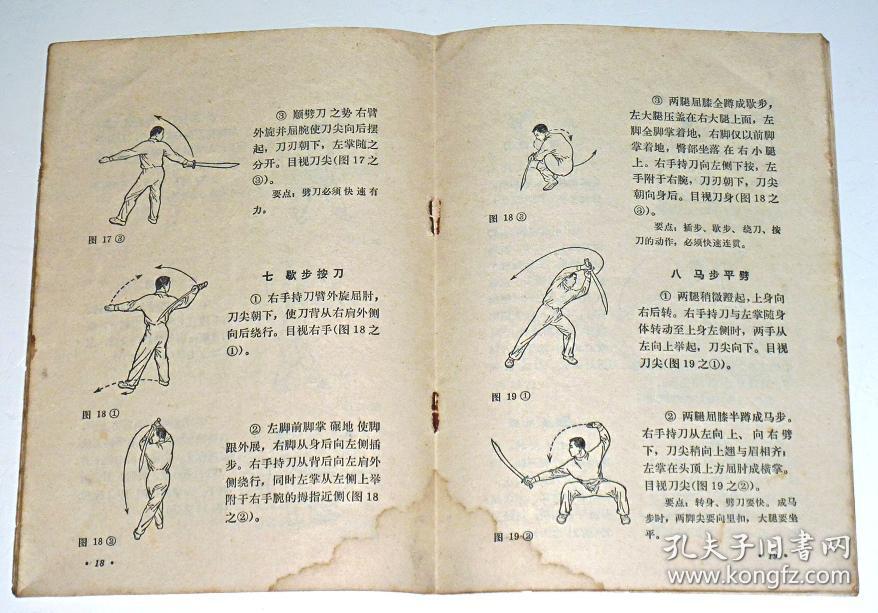 ③ 顺劈刀之势右臂
外旋并屈腕使刀尖向后摆
起，刀刃朝下，左掌随之
分开。目视刀尖(图17之
③)。
要点：劈刀必须快速有
力。
图 17 ③
七 歇步按刀
① 右手持刀臂外旋屈肘，
刀尖朝下，使刀背从右肩外侧
向后绕行。目视右手(图18之
①)。
图 18 ①
② 左脚前脚掌碾地使脚
跟外展，右脚从身后向左侧插
步。右手持刀从背后向左肩外
侧绕行，同时左掌从左侧上举
附于右手腕的拇指近侧(图18
之②)。
图 18 ③
·18·
③ 两腿屈膝全蹲成歇步，
左大腿压盖在右大腿上面，左
脚全脚掌着地，右脚仅以前脚
掌着地，臀部坐落在右小腿
上。右手持刀向左侧下按，左
手附于右腕，刀刃朝下，刀尖
朝向身后。目视刀身(图18之
③)。
要点：插步、歇步、绕刀、按
刀的动作，必须快速连贯。
图 18 ③
八 马步平劈
① 两腿稍微蹬起，上身向
右后转。右手持刀与左掌随身
体转动至上身左侧时，两手从
左向上举起，刀尖向下。目视
刀尖(图19之①)。
图 19 ①
② 两腿屈膝半蹲成马步。
右手持刀从左向上、向右劈
下，刀尖稍向上翘与眉相齐；
左掌在头顶上方屈肘成横掌。
目视刀尖(图19之②)。
要点：转身、劈刀要快。成马
步时，两脚尖要向里扣，大腿要坐
平。
图 19 ②
·19·
孔夫子旧书网
www.kongfz.com